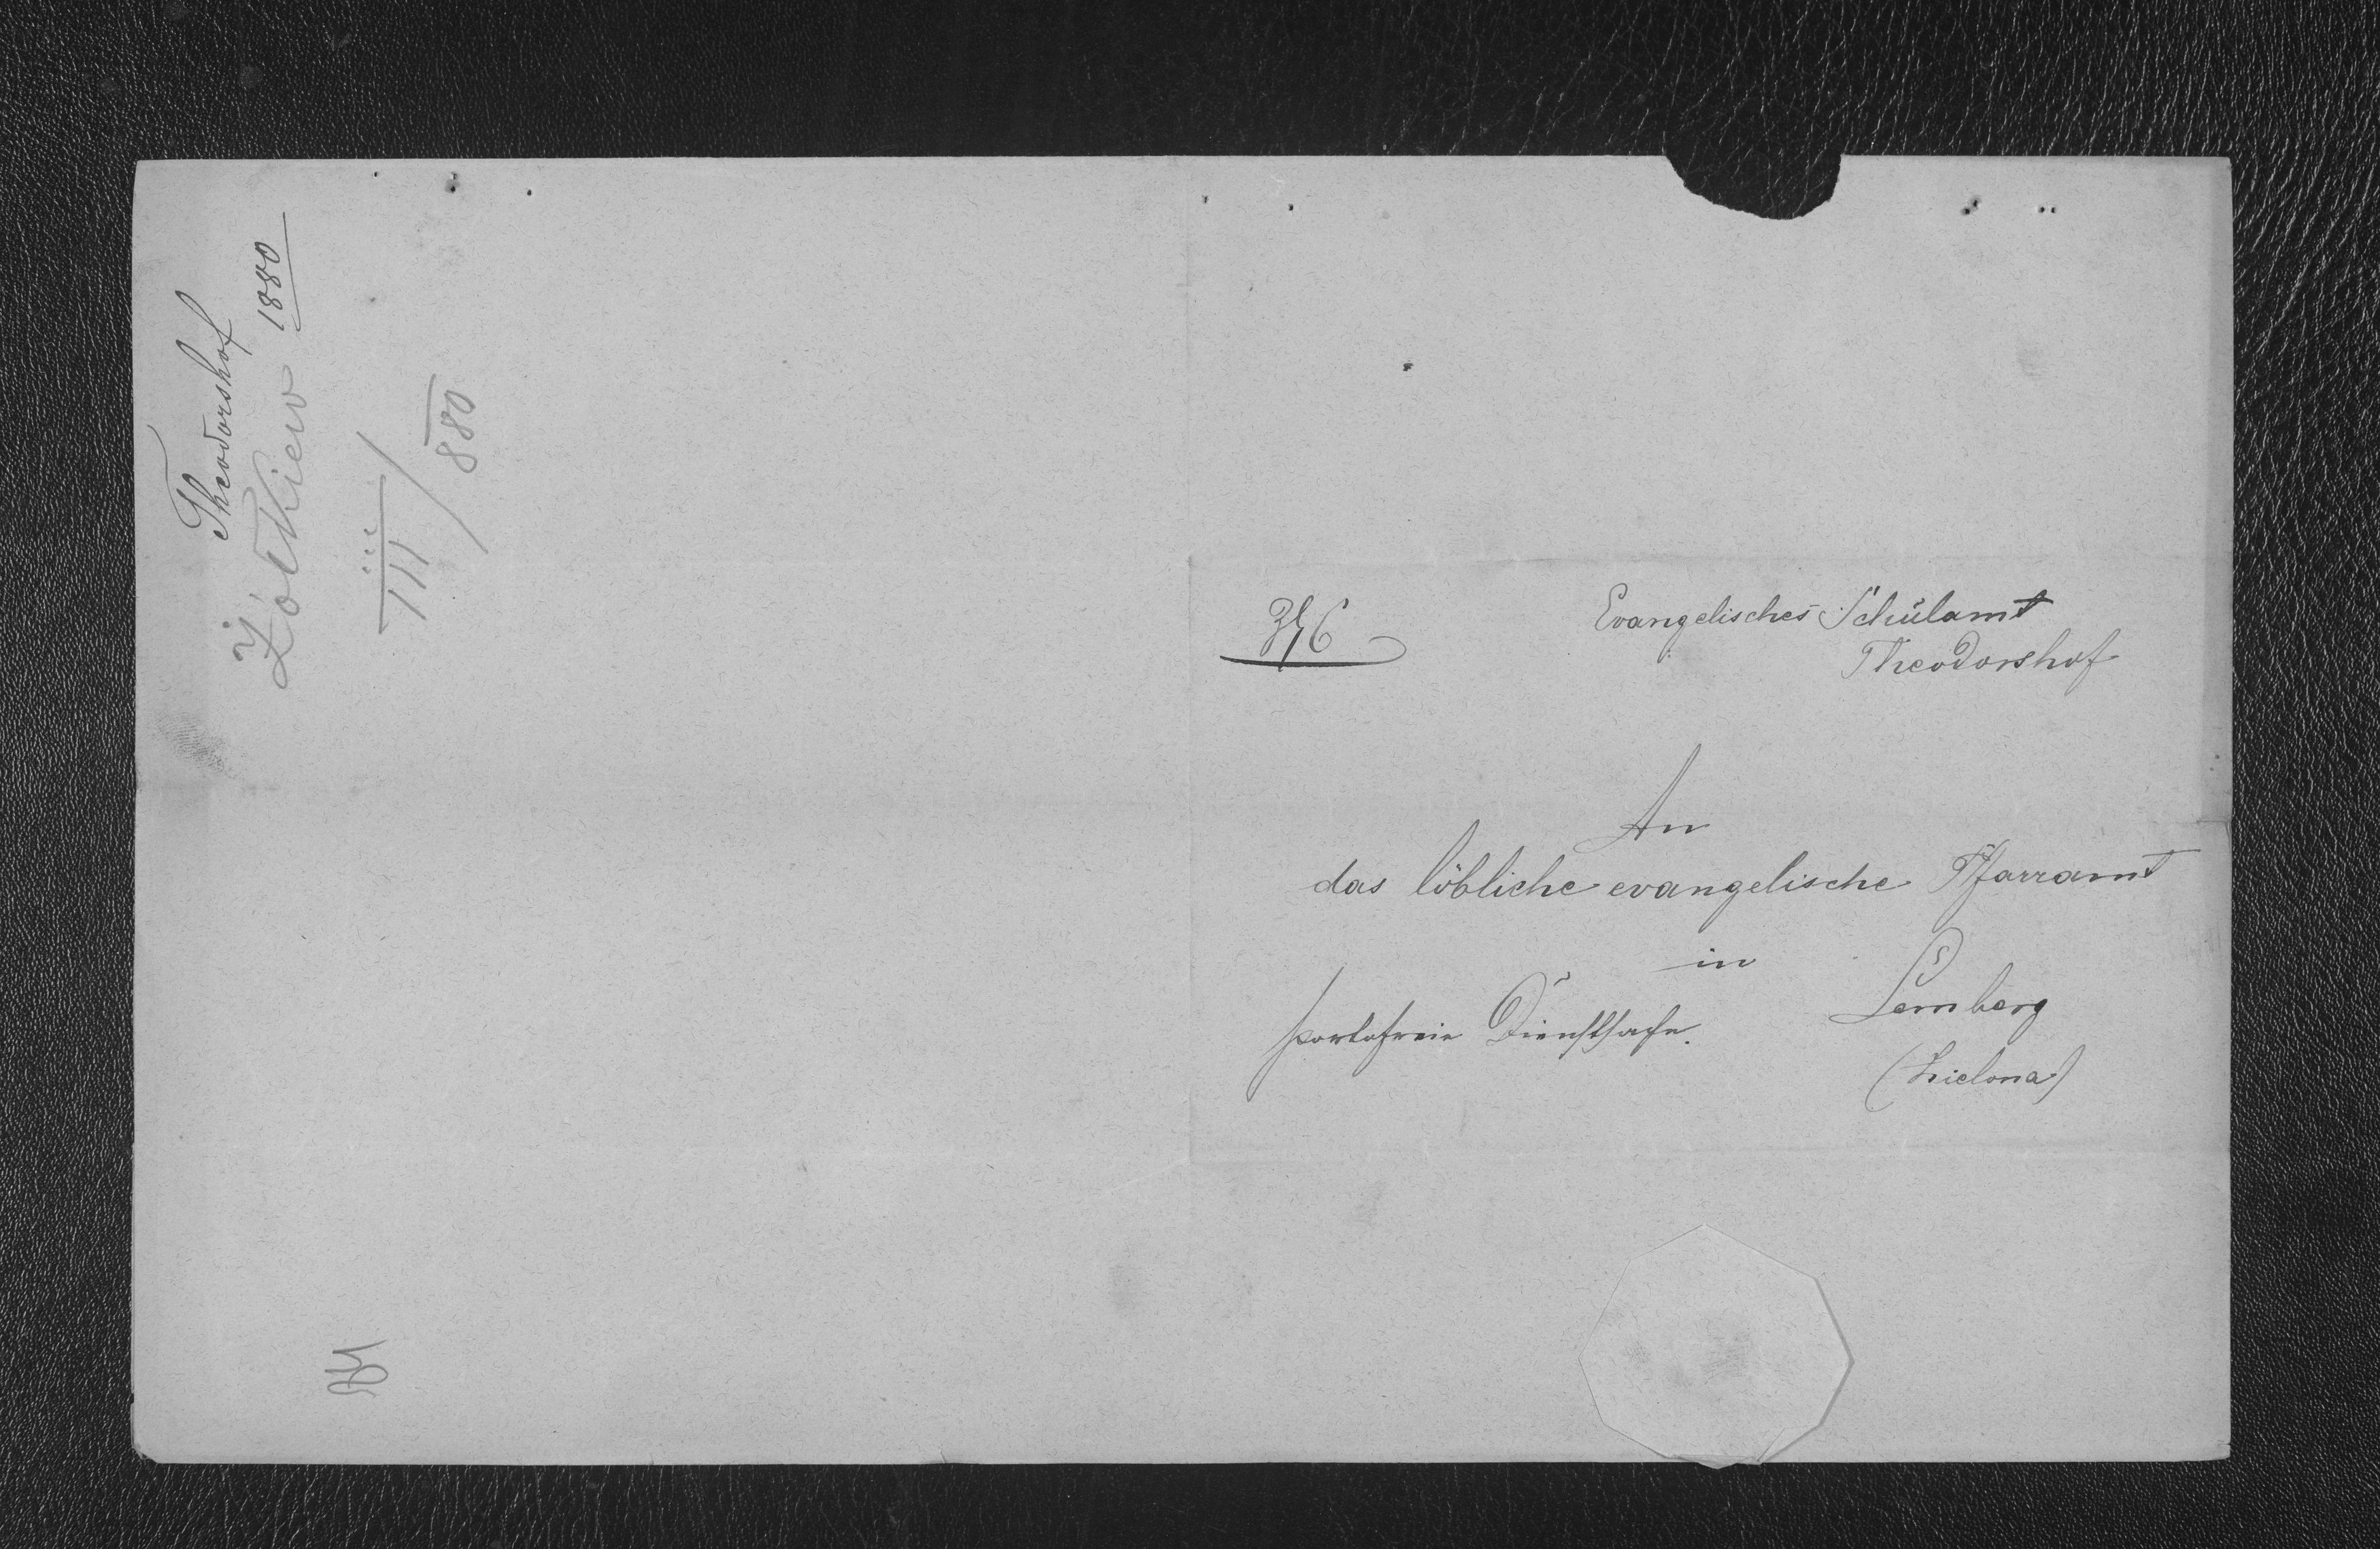 Theodorshof
Żółkiew 1880
III / 880
Evangelisches Schulamt
Theodorshof
An
das löbliche evangelische Pfarramt
in
Lemberg
portofreie Dienstsache.
(Zielona)